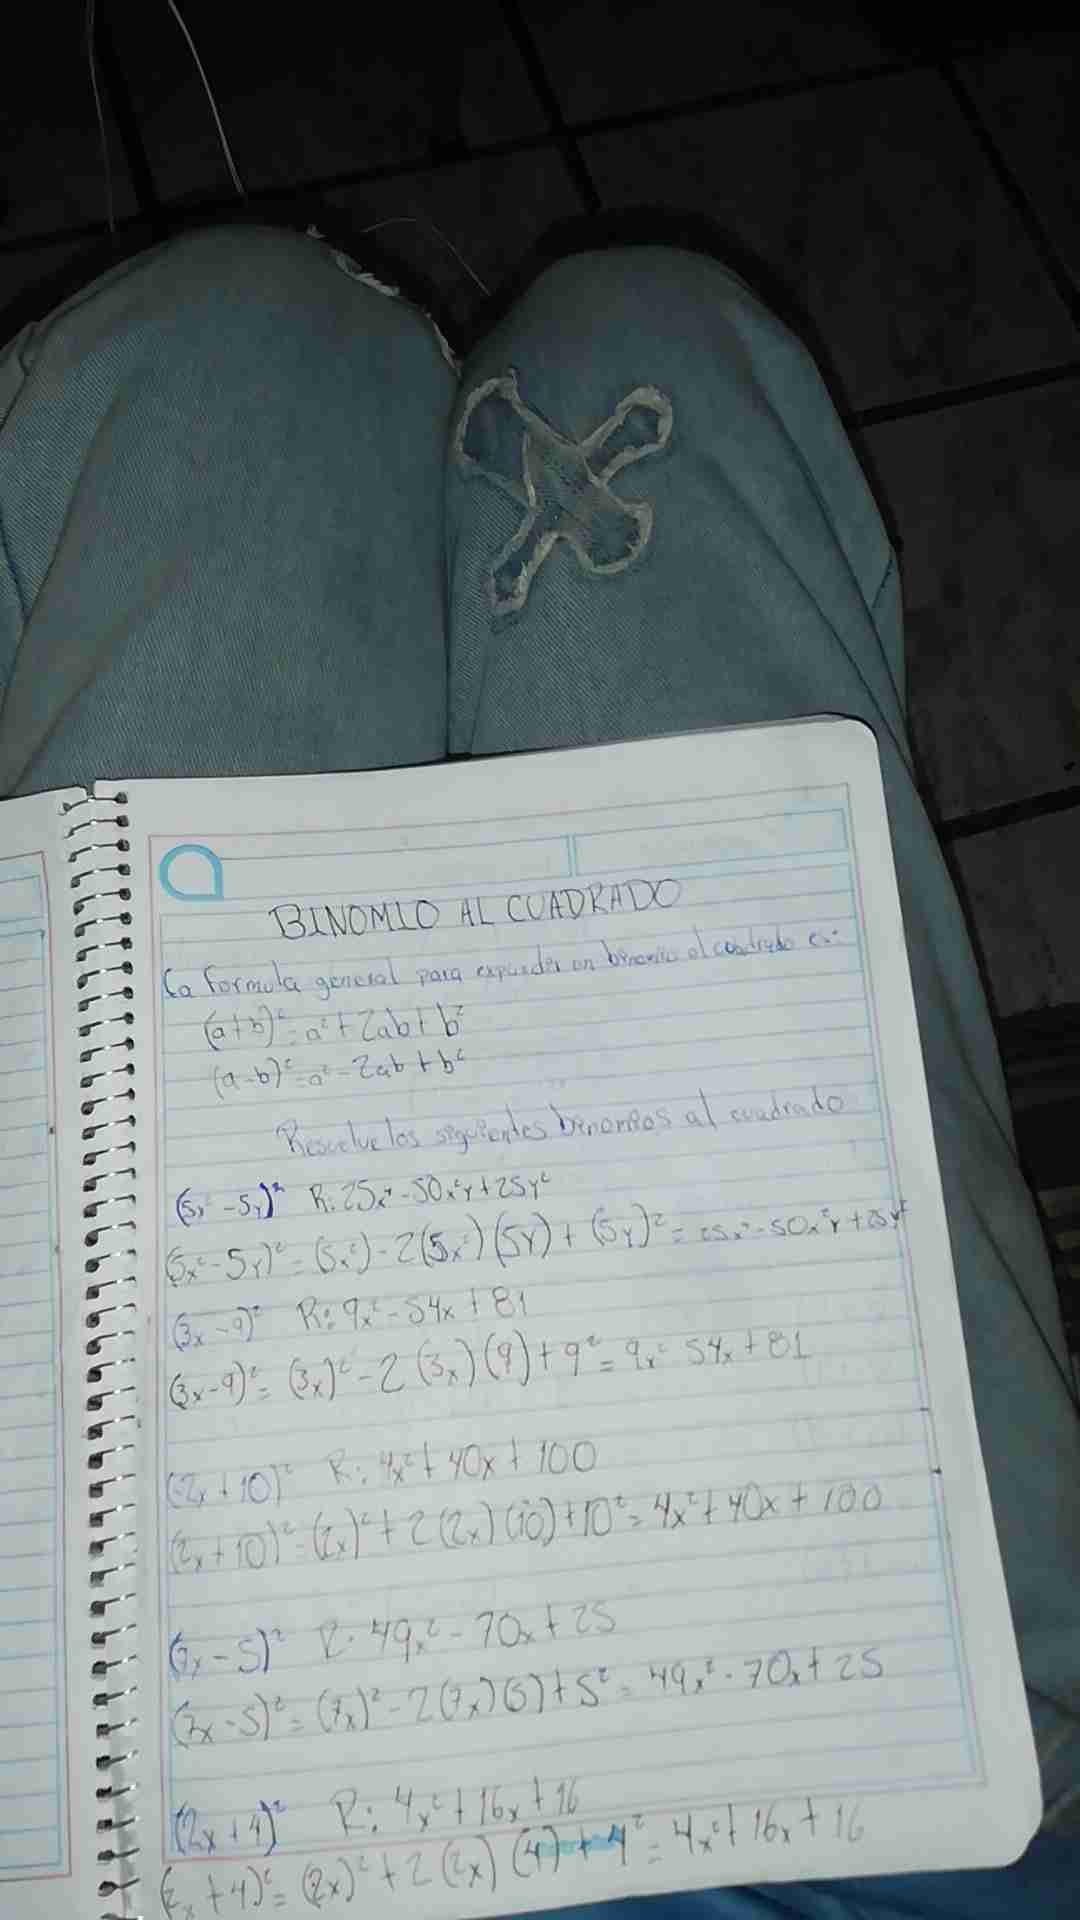 BINOMIO AL CUADRADO
La formula general para expander un binomio al cuadrado es:
(a+b)² = a² + 2ab + b²
(a-b)² = a² - 2ab + b²
Resuelve los siguientes binomios al cuadrado
(5x² - 5y)² R: 25x⁴ - 50x²y + 25y²
(5x² - 5y)² = (5x²) - 2(5x²)(5y) + (5y)² = 25x⁴ - 50x²y + 25y²
(3x - 9)² R: 9x² - 54x + 81
(3x - 9)² = (3x)² - 2(3x)(9) + 9² = 9x² 54x + 81
(2x + 10)² R: 4x² + 40x + 100
(2x + 10)² = (2x)² + 2(2x)(10) + 10² = 4x² + 40x + 100
(7x - 5)² R: 49x² - 70x + 25
(7x - 5)² = (7x)² - 2(7x)(5) + 5² = 49x² - 70x + 25
(2x + 4)² R: 4x² + 16x + 16
(2x + 4)² = (2x)² + 2(2x)(4) + 4² = 4x² + 16x + 16